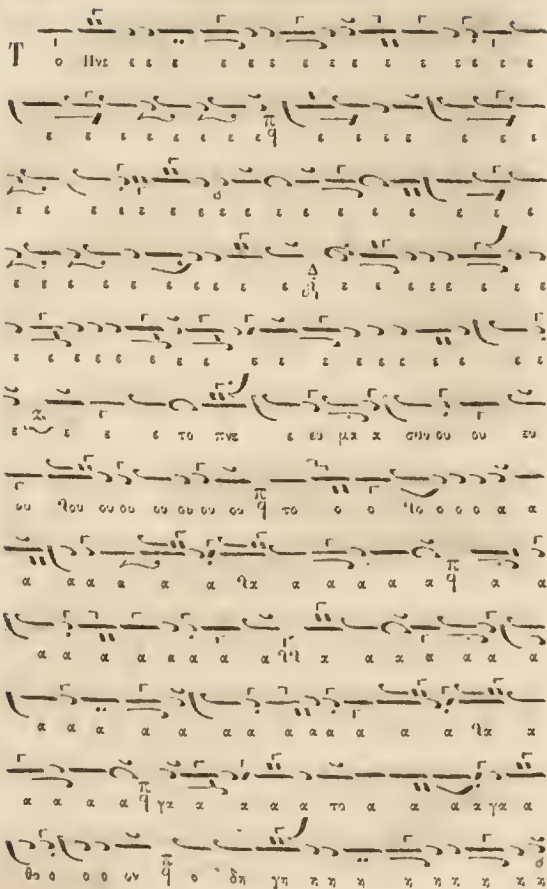 Τ ο Πνε ε ε ε ε ε ε ε ε ε ε ε ε ε ε ε
ε ε ε ε ε ε ε ε ε π q ε ε ε ε ε ε ε
ε ε ε ε ε ε ε ε ε ε ε ε ε ε ε ε ε ε
ε ε ε ε ε ε ε ε ε ε Δ ε ε ε ε ε ε ε ε
ε ε ε ε ε ε ε ε ε ε ε ε ε ε ε ε ε ε
ε ε ε ε το πνε ε ευ μα α σου ου ου ευ
ου χου ου ου ου ου ου ου π q το ο ο χο ο ο ο α α
α α α α α α χα α α α α α π q α α
α α α α α α α α α α α α α α α
α α α α α α α α α α α α α χα α
α α α α π q γα α α α α το α α α α γα α
θο ο ο ο ον π q ο δη γη η η η η η η η η